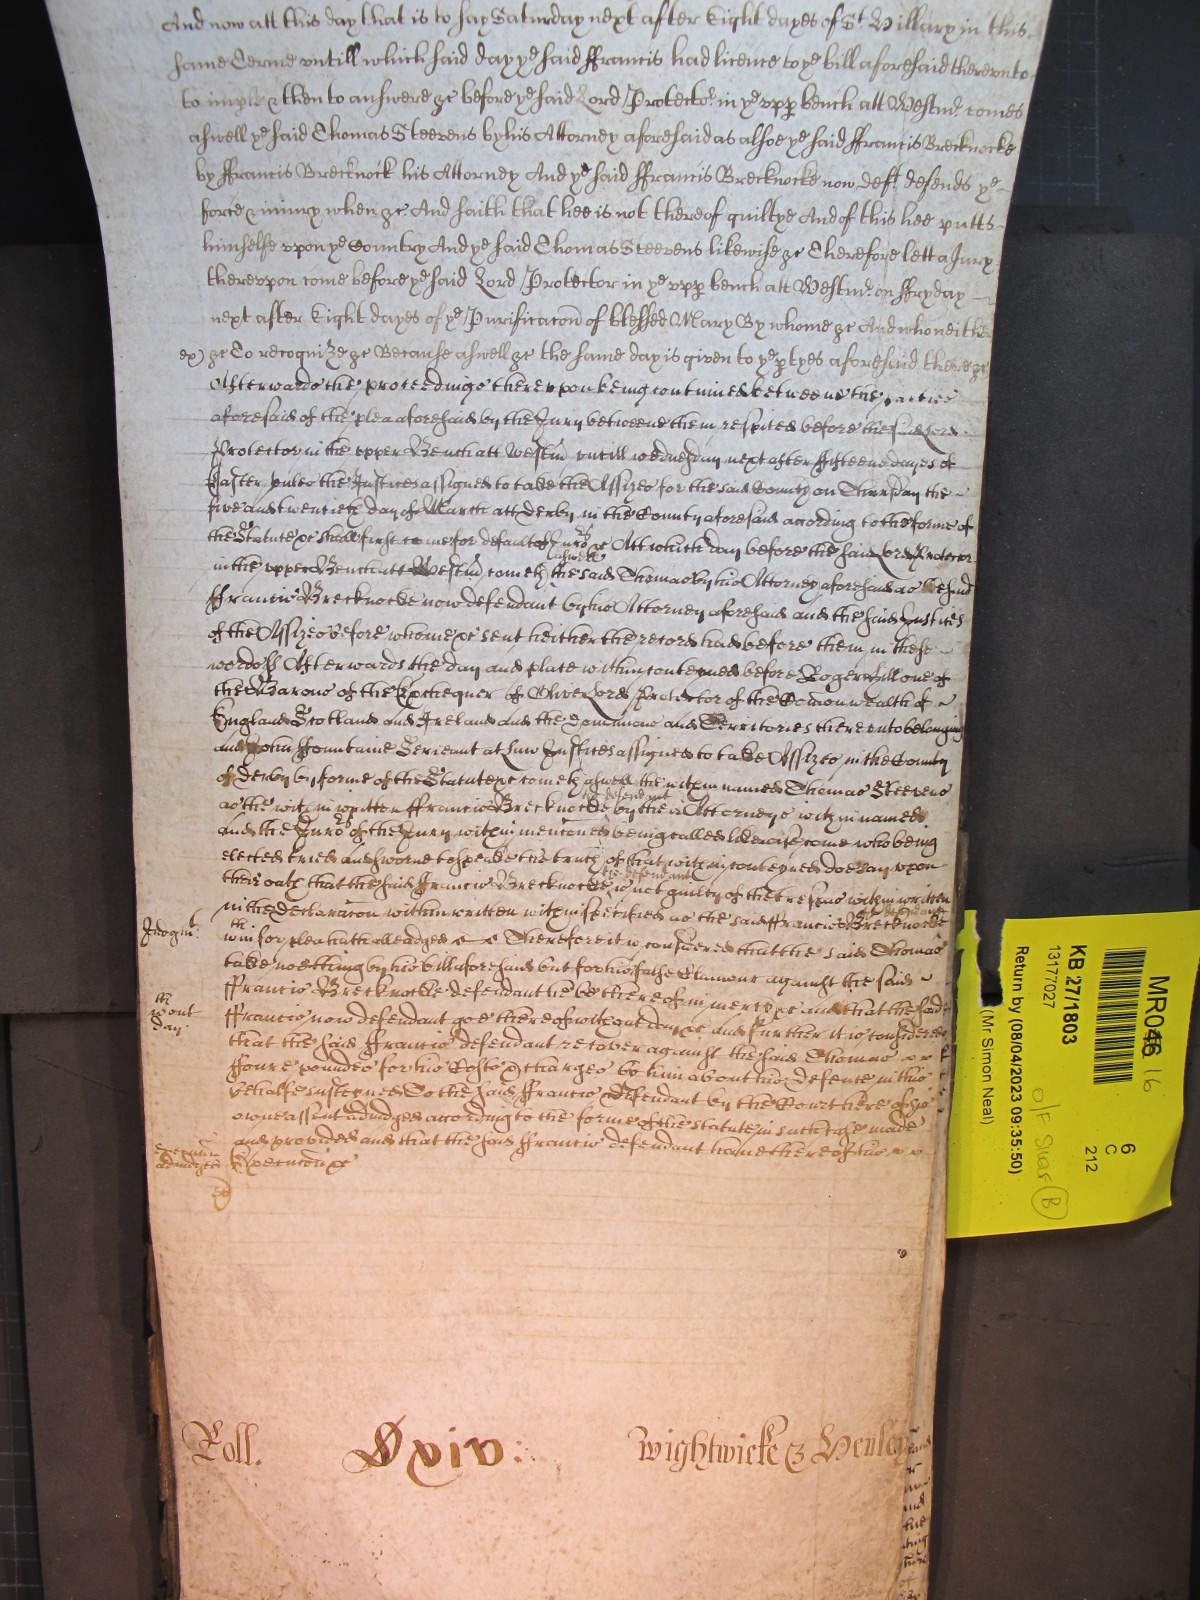 And now att this day that is to say Saturday next after Eight dayes of St. Hillary in this
same Terme vntill which said day ye said ffrancis had licence to ye bill aforesaid therevnto
to imple & then to answere &c before ye said Lord Protector in ye vpp bench att Westmr. comes
aswell ye said Thomas Steevens by his Attorney aforesaid as alsoe ye said ffrancis Brecknocke
by ffrancis Brecknock his Attorney And ye said ffrancis Brecknocke now deft defends ye
force & iniury when &c And saith that hee is not thereof guiltye And of this hee putts
himselfe vpon ye Country And ye said Thomas Steevens likewise &c Therefore lett a Jury
therevpon come before ye said Lord Protector in ye vpp bench att Westmr. on ffryday
next after Eight dayes of ye Purificacon of blessed Mary By whome &c And who neither
ex) &c To recognize &c Because aswell &c the same day is given to ye ptyes aforesaid there &c
Afterwards the proceedings therevpon being continued betweene the parties
aforesaid of the plea aforesaid by the Jury betweene them respited before the said Lord
Protector in the vpper Bench att Westm vntill wednesday next after fifteene dayes of
Easter vnles the Justices assigned to take the Assizes for the said County on Thursday the
five and twentieth day of March att Derby in the County aforesaid according to the forme of
the Statute &c shall first come for default of Jurors &c Att which day before the said Lord Protector
in the vpper Bench att Westm cometh aswell the said Thomas by his Attorney aforesaid as the said
ffrancis Brecknocke now defendant by his Attorney aforesaid and the said Justices
of the Assizes before whome &c sent hether the record had before them in these
words Afterwards the day and place within conteyned before Roger Hill one of
the Barons of the Exchequer of Oliver Lord Protector of the Comonwealth of
England Scotland and Ireland and the dominions and Territories therevnto belonging
and John ffountaine Serieant at Law Justices assigned to take Assizes in the County
of Derby by forme of the Statute &c cometh aswell the within named Thomas Steevens
as the within written ffrancis Brecknocke the defendant by their Attorneys within named
And the Jurors of the Jury within mentoned being called likewise come who being
elected tried and sworne to speake the truth of that within conteyned doe say vpon
their oath that the said ffrancis Brecknocke the defendant is not guilty of the trespas within written
in the declaracon within written within specified as the said ffrancis Brecknocke the defendant
Judgmt. within for plea hath alleadged Therefore it is considered that the said Thomas
take nothing by his bill aforesaid but for his false Clamour against the said
ffrancis Brecknocke defendant hee be thereof in mercy &c and that the said
without day ffrancis now defendant goe thereof without day &c and further it is considered
that the said ffrancis defendant recover against the said Thomas
ffoure pounds for his Costs & charges by him about his defence in this
behalfe susteyned To the said ffrancis defendant by the Court here of his
owne assent adiudged according to the forme of the statute in such case made
and provided and that the said ffrancis defendant have thereof his
Execucon &c
Roll.
xiv:
Wightwicke & Henley
MR046
16
KB 27/1803
13177027
Return by (08/04/2023 09:35:50)
(Mr Simon Neal)
6
C
212
O/F Shar
B